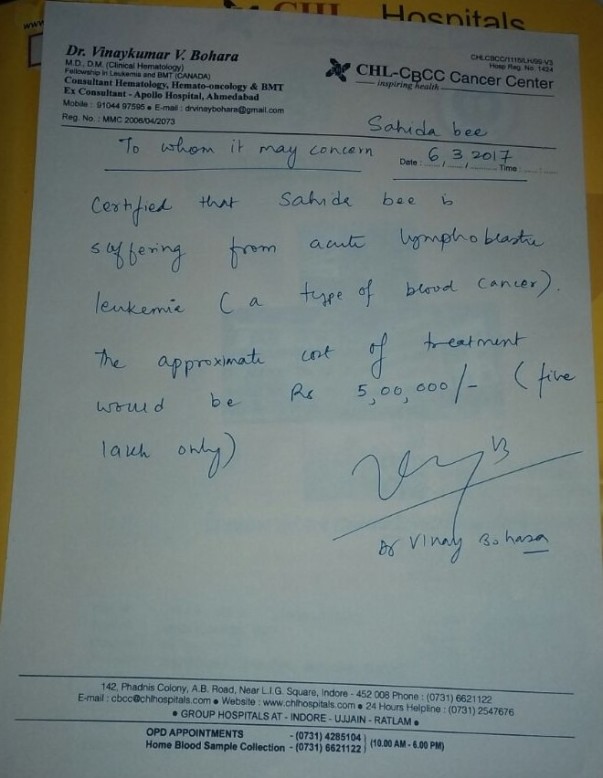 www
CHL Hospitals
Dr. Vinaykumar V. Bohara
M.D., D.M. (Clinical Hematology)
Fellowship in Leukemia and BMT (CANADA)
Consultant Hematology, Hemato-oncology & BMT
Ex Consultant - Apollo Hospital, Ahmedabad
Mobile : 91044 97595 • E-mail : drvinaybohara@gmail.com
Reg. No. : MMC 2006/04/2073
Hosp Reg. No. 1424
CHL-CBCC Cancer Center
inspiring health
Sahida bee
To whom it may concern
Date : 6, 3, 2017 Time
Certified that Sahida bee is
suffering from acute lymphoblastic
leukemia ( a type of blood cancer).
The approximate cost of treatment
would be Rs 5,00,000/- ( five
lakh only)
Dr Vinay Bohara
142, Phadnis Colony, A.B. Road, Near L.I.G. Square, Indore - 452 008 Phone : (0731) 6621122
E-mail : cbcc@chlhospitals.com • Website : www.chlhospitals.com • 24 Hours Helpline : (0731) 2547676
• GROUP HOSPITALS AT - INDORE - UJJAIN - RATLAM •
OPD APPOINTMENTS - (0731) 4285104
Home Blood Sample Collection - (0731) 6621122 (10.00 AM - 6.00 PM)